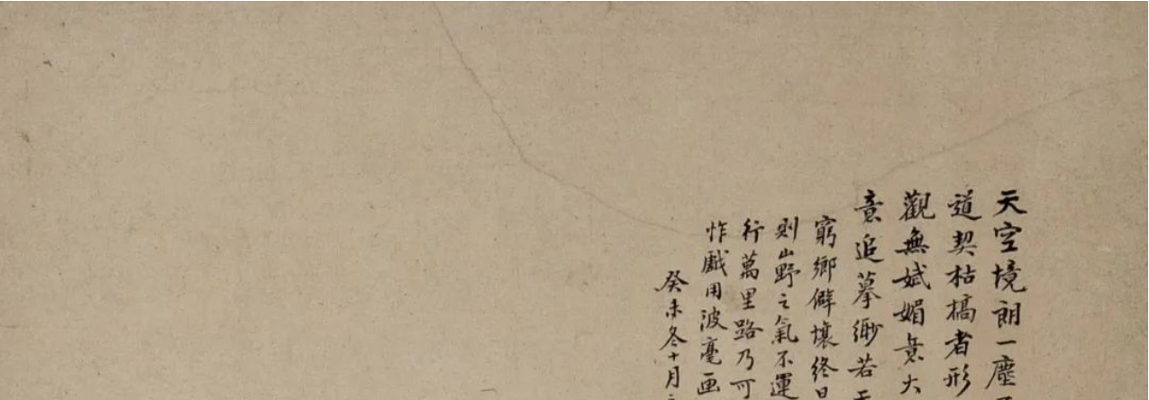 天空境朗一塵
道契枯槁者形
觀無斌媚意大
意追摹緬若
窮鄉僻壤終日
則山野之氣不運
行萬里路乃可
怍戲用波毫画
癸未冬十月